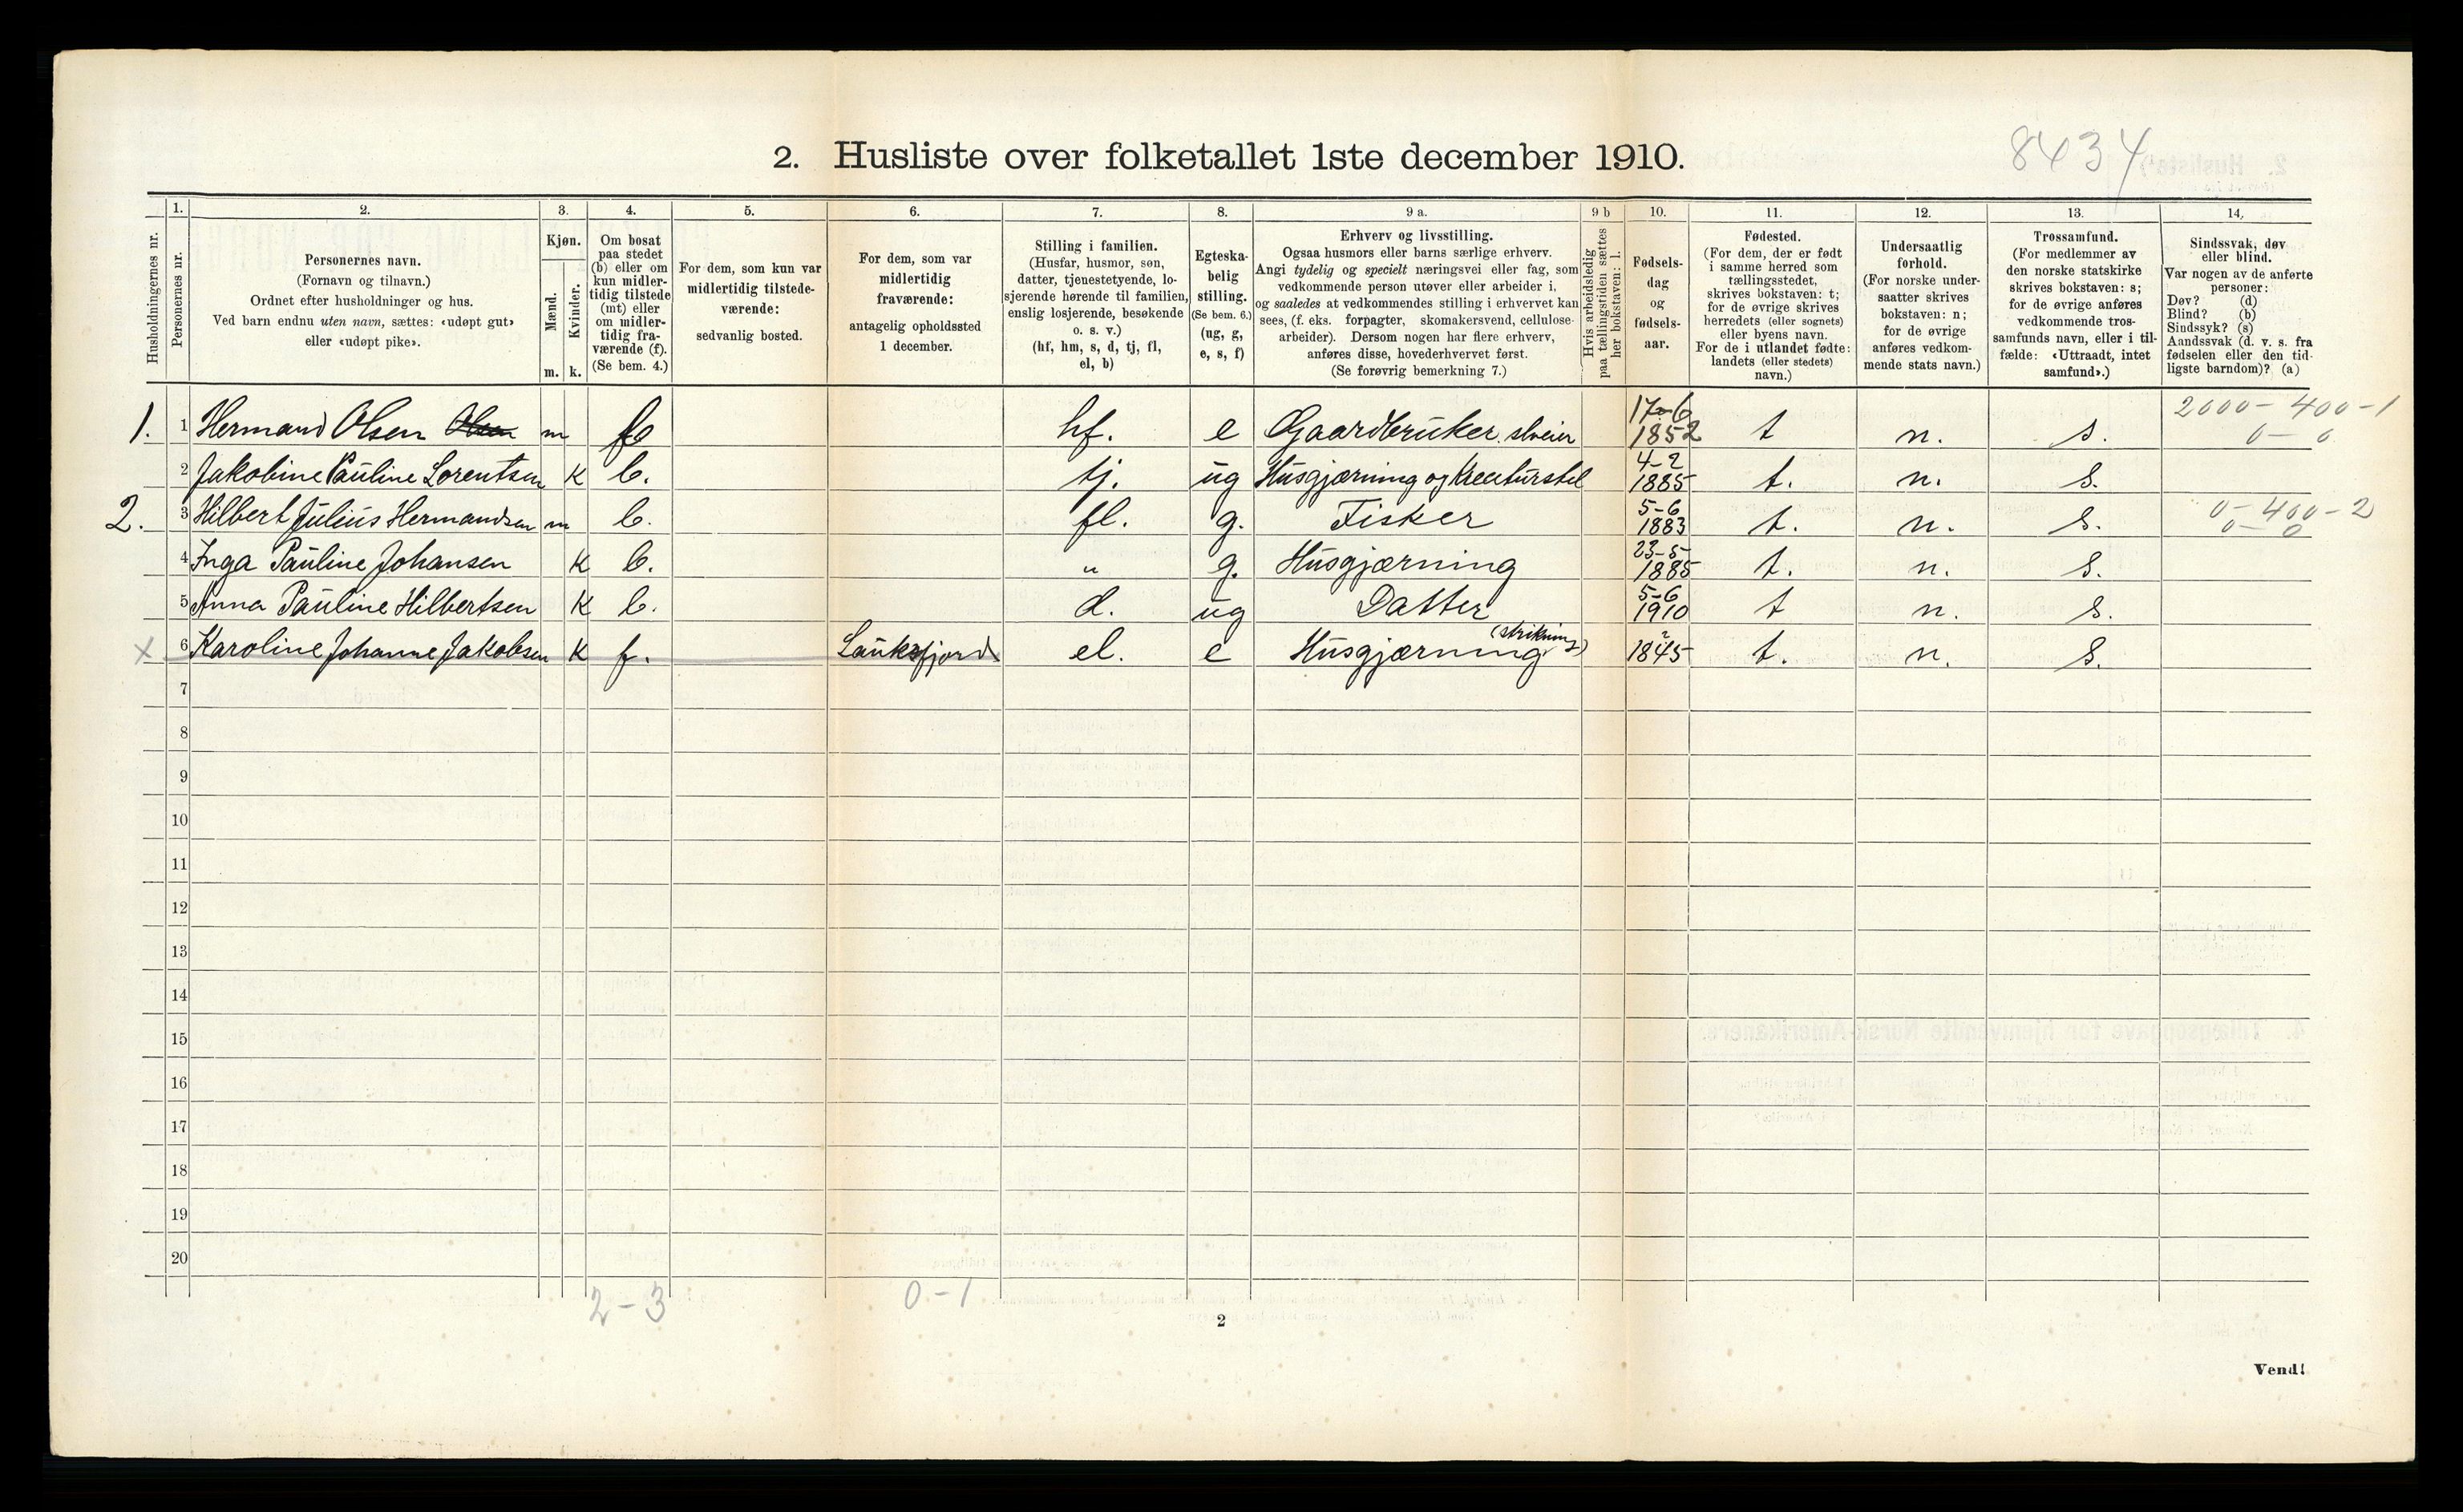 2. Husliste over folketallet 1ste december 1910.
8434
Husholdningernes nr.
1.
Personernes nr.
2.
Personernes navn.
(Fornavn og tilnavn.)
Ordnet efter husholdninger og hus.
Ved barn endnu uten navn, sættes: «udøpt gut»
eller «udøpt pike».
3.
Kjøn.
Mænd.
Kvinder.
m. k.
4.
Om bosat
paa stedet
(b) eller om
kun midler-
tidig tilstede
(mt) eller
om midler-
tidig fra-
værende (f).
(Se bem. 4.)
5.
For dem, som kun var
midlertidig tilstede-
værende:
sedvanlig bosted.
6.
For dem, som var
midlertidig
fraværende:
antagelig opholdssted
1 december.
7.
Stilling i familien.
(Husfar, husmor, søn,
datter, tjenestetyende, lo-
sjerende hørende til familien,
enslig losjerende, besøkende
o. s. v.)
(hf, hm, s, d, tj, fl,
el, b)
8.
Egteska-
belig
stilling.
(Se bem. 6.)
(ug, g,
e, s, f)
9 a.
Erhverv og livsstilling.
Ogsaa husmors eller barns særlige erhverv.
Angi tydelig og specielt næringsvei eller fag, som
vedkommende person utøver eller arbeider i,
og saaledes at vedkommendes stilling i erhvervet kan
sees, (f. eks. forpagter, skomakersvend, cellulose-
arbeider). Dersom nogen har flere erhverv,
anføres disse, hovederhvervet først.
(Se forøvrig bemerkning 7.)
9 b
Hvis arbeidsledig
paa tællingstiden sættes
her bokstaven: l.
10.
Fødsels-
dag
og
fødsels-
aar.
11.
Fødested.
(For dem, der er født
i samme herred som
tællingsstedet,
skrives bokstaven: t;
for de øvrige skrives
herredets (eller sognets)
eller byens navn.
For de i utlandet fødte:
landets (eller stedets)
navn.)
12.
Undersaatlig
forhold.
(For norske under-
saatter skrives
bokstaven: n;
for de øvrige
anføres vedkom-
mende stats navn.)
13.
Trossamfund.
(For medlemmer av
den norske statskirke
skrives bokstaven: s;
for de øvrige anføres
vedkommende tros-
samfunds navn, eller i til-
fælde: «Uttraadt, intet
samfund».)
14.
Sindssvak, døv
eller blind.
Var nogen av de anførte
personer:
Døv? (d)
Blind? (b)
Sindssyk? (s)
Aandssvak (d. v. s. fra
fødselen eller den tid-
ligste barndom)? (a)
1. 1 Hermand Olsen m b hf. e Gaardbruker. slveier 17-6 1852 t n. s. 2000-400-1
0-0
2 Jakobine Pauline Lorentsen k b. tj. ug Husgjærning og Kreaturstel 4-2 1885 t. n. s.
2. 3 Hilbert Julius Hermandsen m b. fl. g. Fisker 5-6 1883 t. n. s. 0-400-2
0-0
4 Inga Pauline Johansen k b. " g. Husgjærning 23-5- 1885 t. n. s.
5 Anna Pauline Hilbertsen k b. d. ug Datter 5-6 1910 t n. s.
x 6 Karoline Johanne Jakobsen k f. Lauksfjord el. e Husgjærning (strikning) ? 1845 t. n. s.
7
8
9
10
11
12
13
14
15
16
17
18
19
20
2-3 0-1
2
Vend!